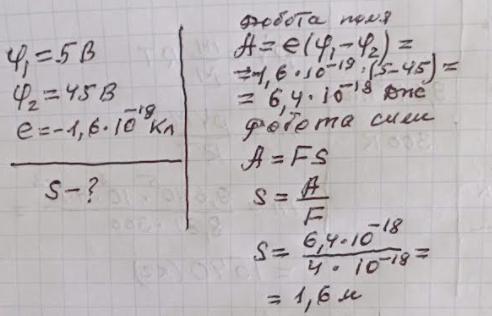 φ₁ = 5 В
φ₂ = 45 В
e = -1,6·10⁻¹⁹ Кл
S - ?
Робота поля
A = e(φ₁ - φ₂) =
= -1,6·10⁻¹⁹·(5-45) =
= 6,4·10⁻¹⁸ Дж
Робота сили
A = FS
S = A/F
S = 6,4·10⁻¹⁸ / 4·10⁻¹⁸ =
= 1,6 м